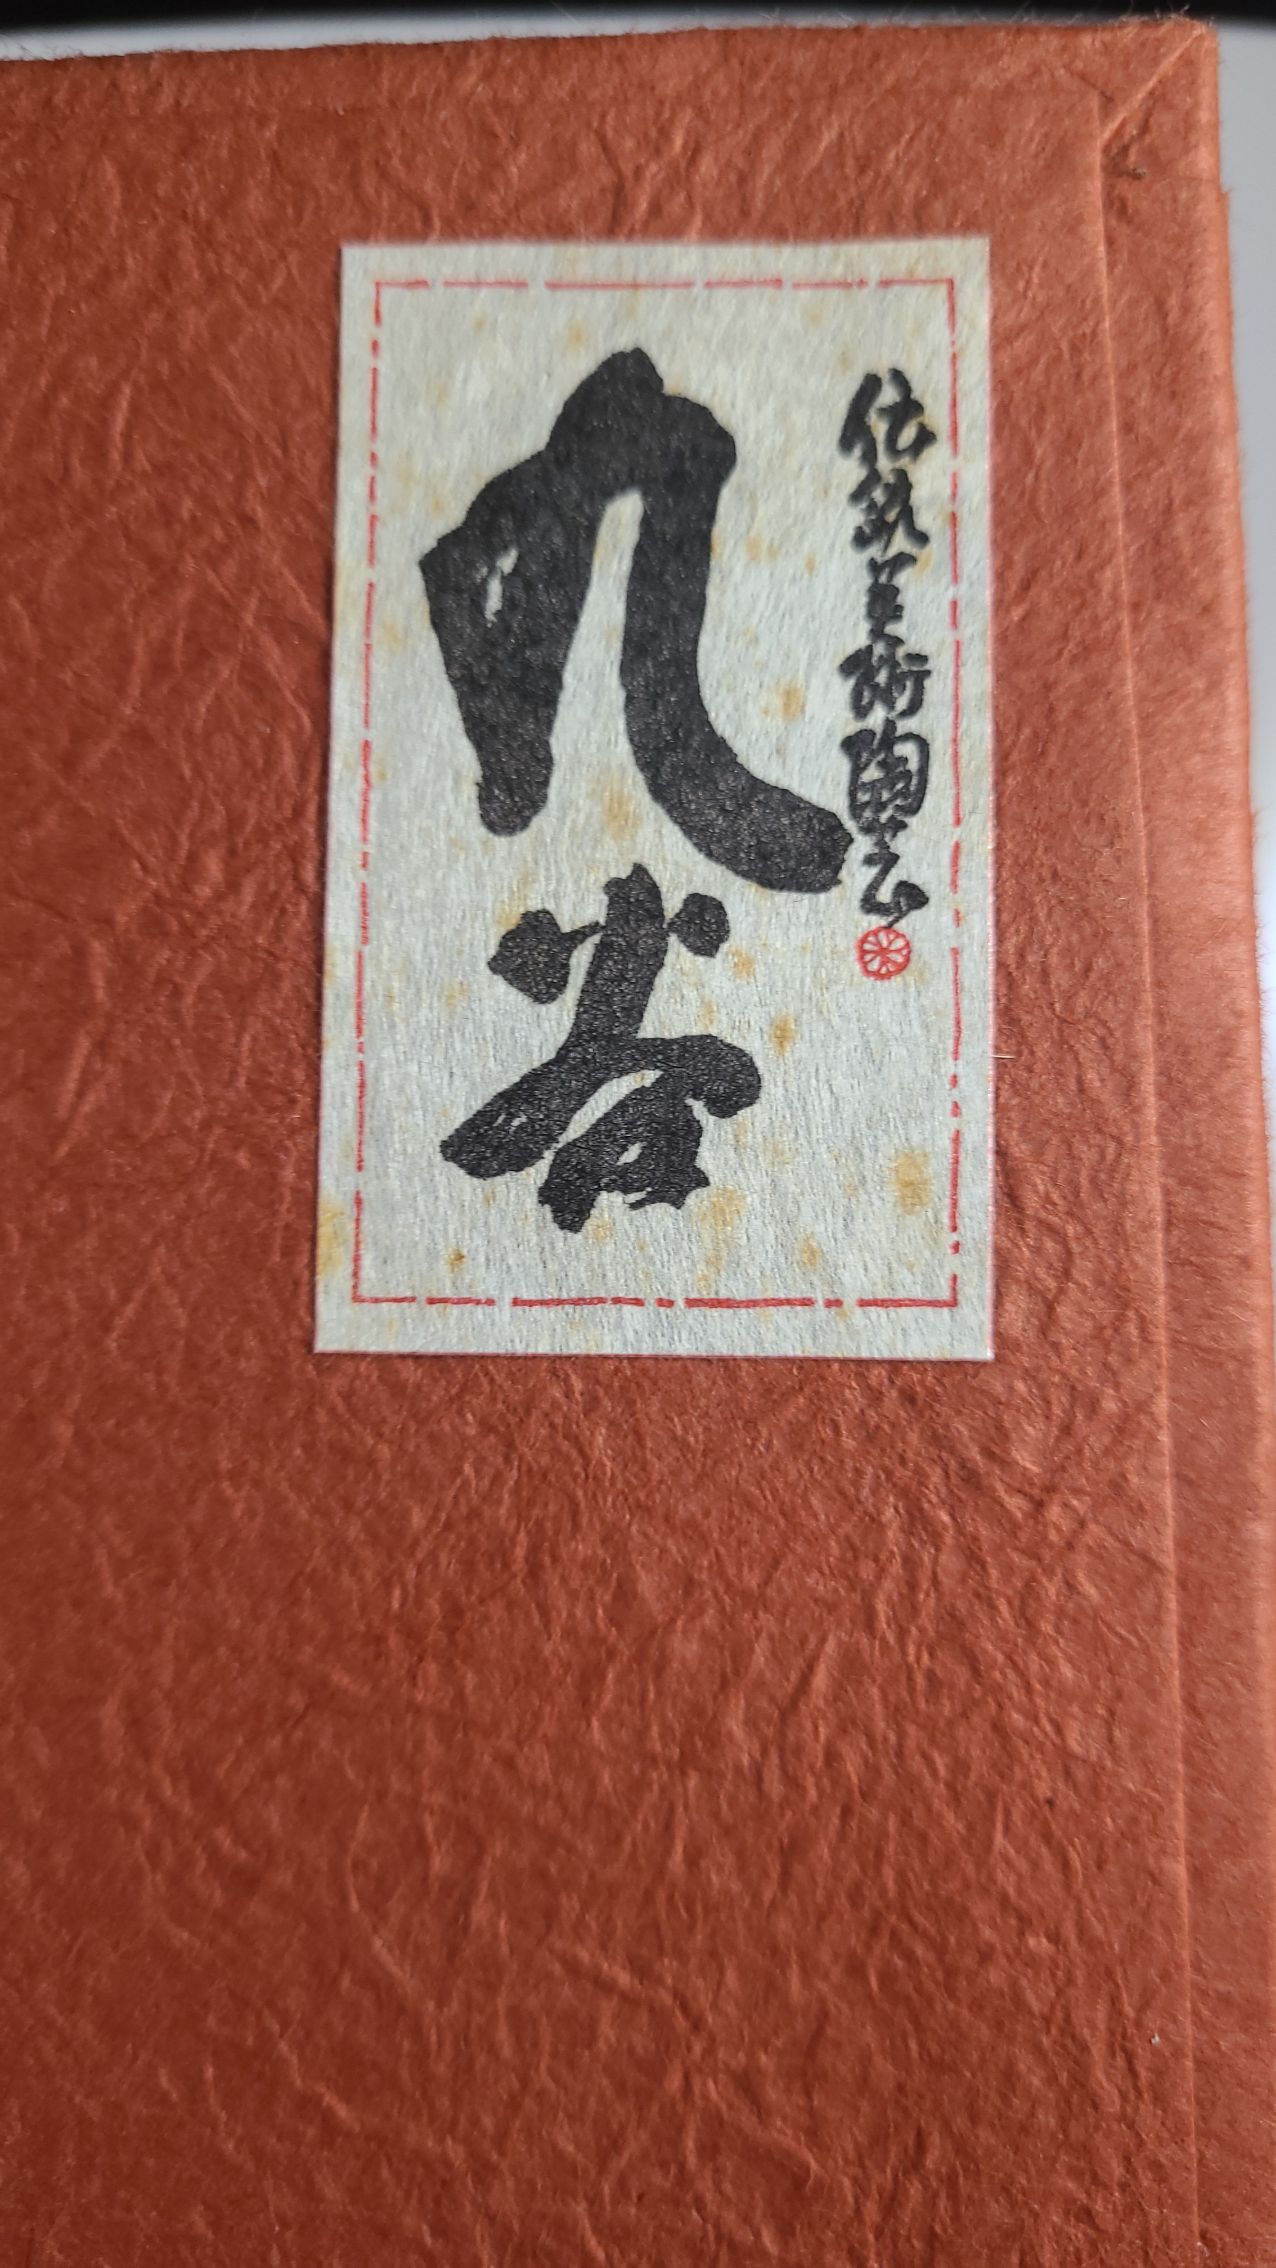 伝統美術陶芸
九谷